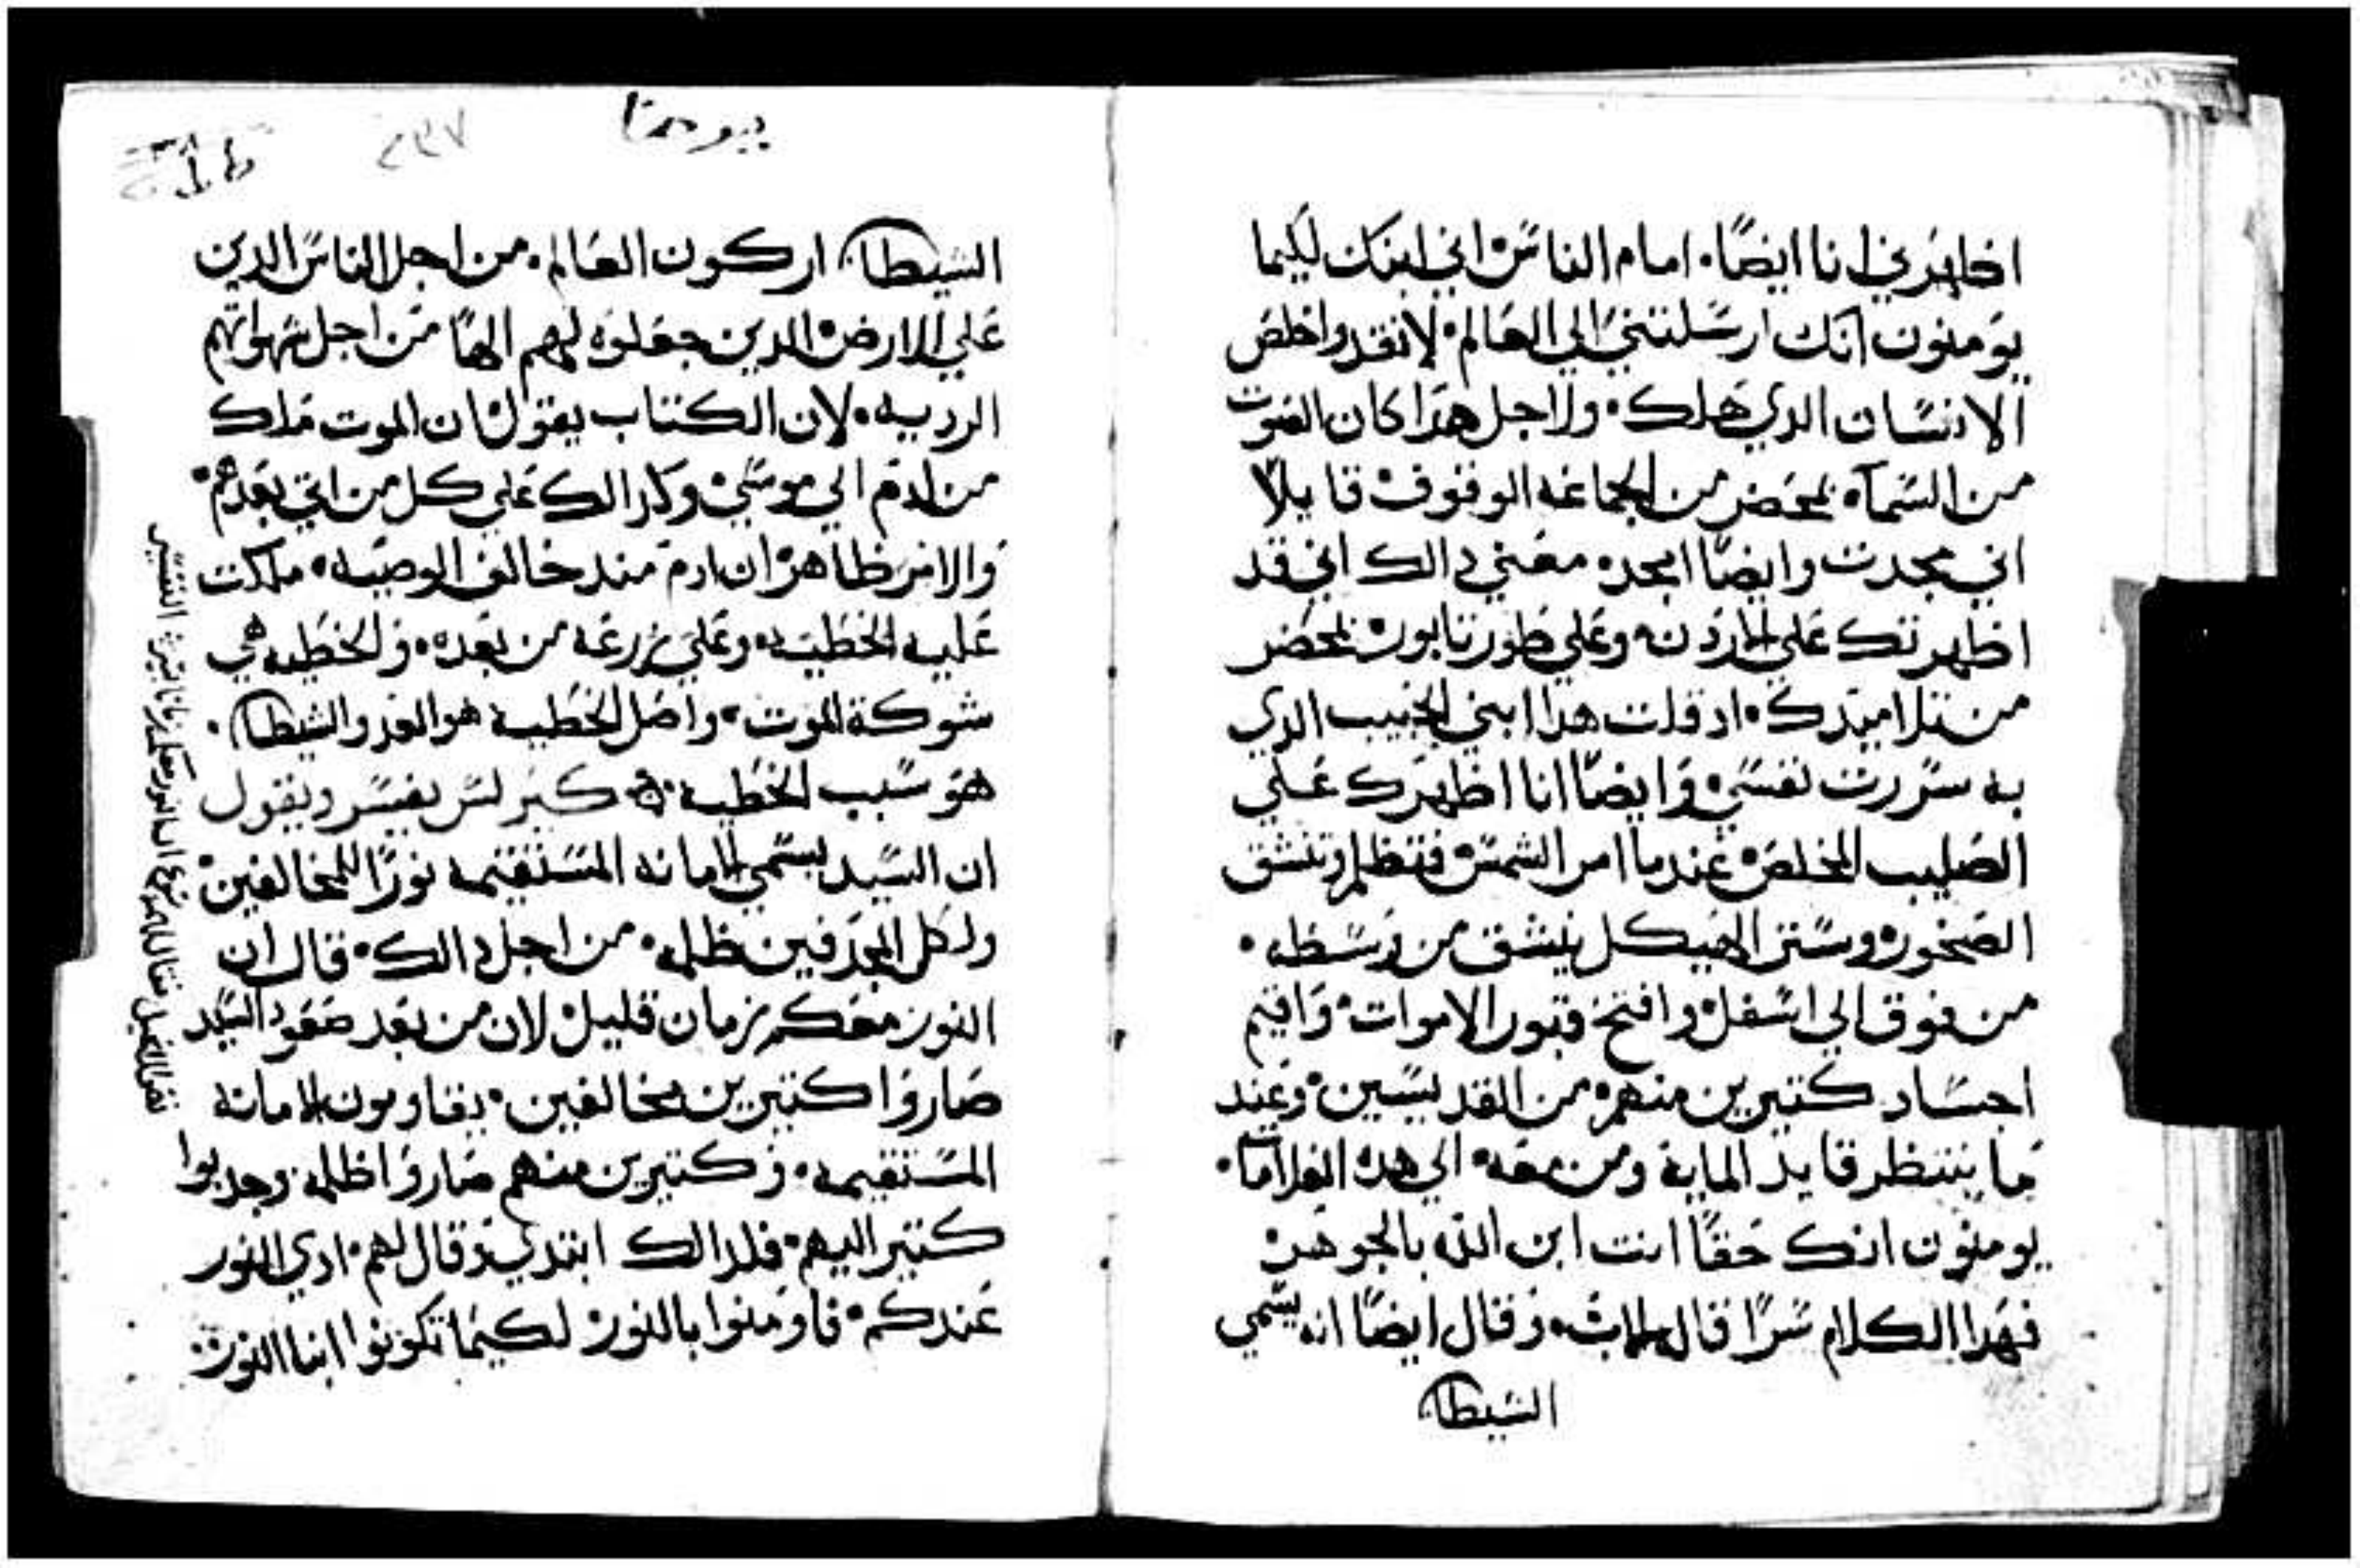 اظهرني انا ايضًا. امام الناس اني ابنك لكيما
يومنون انك ارسلتني الي العالم لانقد واخلص
الانسان الدي هلك. ولاجل هدا كان الصوت
من السمآء بمحضر من الجماعه الوقوف قايلًا
اني مجدت وايضًا امجد. معني دالك اني قد
اظهرتك علي الاردن. وعلي طور تابور بمحضر
من تلاميدك. اد قلت هدا ابني الحبيب الدي
به سررت نفسي وايضًا انا اظهرك علي
الصليب المخلص عندما امر الشمس فتظلم وتنشق
الصخور وستر الهيكل ينشق من وسطه.
من فوق الي اسفل وافتح قبور الاموات واقيم
اجساد كتيرين منهم من القديسين وعند
ما ينتظر قايد الماية ومن معه الي هده العلامات.
يومنون انك حقًا انت ابن الله بالجوهر
فهدا الكلام سرًا قال للاب. وقال ايضًا انه يسمي
الشيطان
يوحنا
٢٣٧
الشيطان اركون العالم. من اجل الناس الدين
علي الارض الدين جعلوه لهم الهًا من اجل شهواتهم
الرديه. لان الكتاب يقول ان الموت ملك
من ادم الي موسي وكدالك علي كل من اتي بعدهم.
والامر ظاهر ان ادم مند خالف الوصيه. ملكت
عليه الخطيه. وعلي زرعه من بعده. والخطيه هي
شوكة الموت. واصل الخطيه هو العدو الشيطان.
هو سبب الخطيه. كيرلس يفسر ويقول
ان السيد يسمي الامانه المستقيمه نورًا للمخالفين
ولكل المجدفين ظلمه. من اجل دالك. قال ان
النور معكم زمان قليل لان من بعد صعود السيد
صاروا كتيرين مخالفين. يقاومون الامانه
المستقيمه. وكتيرين منهم صاروا ظلمه وجدبوا
كتير اليهم. فلدالك ابتدي وقال لهم. ادي النور
عندكم. فاومنوا بالنور لكيما تكونوا ابنا النور.